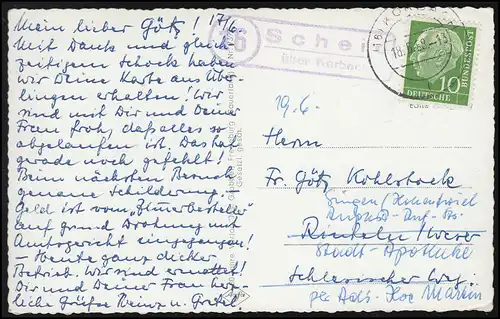 Mein lieber Götz! 17/6
Mit Dank und gleich-
zeitigem Schock haben
wir Deine Karte aus Über-
lingen erhalten! Wir
sind mit Dir und Deiner
Frau froh, daß alles so
abgelaufen ist. Das hat
gerade noch gefehlt!
Beim nächsten Besuch
genaue Schilderung.-
Geld ist vom
auf grund Drohung mit
Amtsgericht eingegangen!
- Heute ganz dicker
Betrieb. Wir sind ermattet!
Dir und Deiner Frau herz-
liche Grüße Heinz u. Gretel.
16
Schei
über Korbac
10
DEUTSCHE
BUNDESPOST
19.6.
Herrn
Fr. Götz Kohlstock
Singen/Hohentwiel
Rinteln/Weser
Stadt-Apotheke
Schlesischer Weg